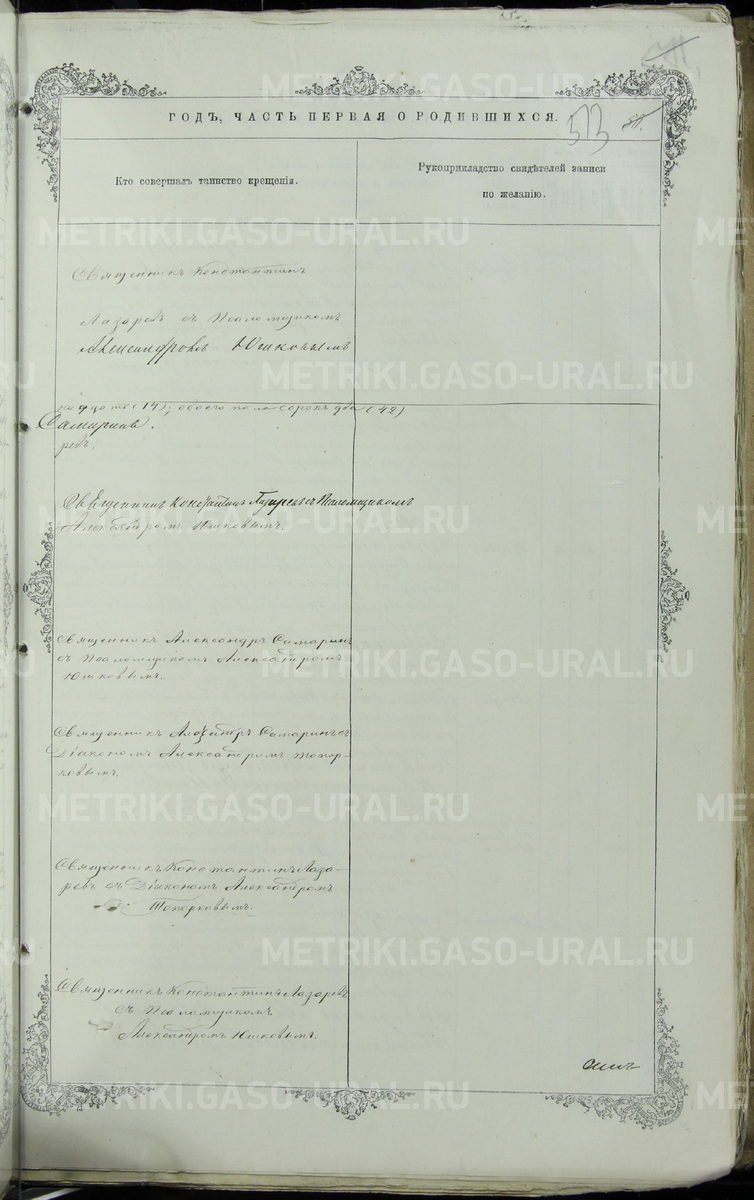 ГОДЪ, ЧАСТЬ ПЕРВАЯ О РОДИВШИХСЯ.
513
Кто совершалъ таинство крещенія.
Рукоприкладство свидѣтелей записи
по желанію.
Священникъ Константинъ
Лазаревъ съ Псаломщикомъ
Александромъ Юшковымъ
надцать (14), обоего пола сорокъ два (42)
Самаринъ.
ревъ.
Священникъ Константинъ Лазаревъ съ Псаломщикомъ
Александромъ Юшковымъ.
Священникъ Александръ Самаринъ
съ Псаломщикомъ Александромъ
Юшковымъ.
Священникъ Александръ Самаринъ съ
Діакономъ Александромъ Топор-
ковымъ.
Священникъ Константинъ Лаза-
ревъ съ Діакономъ Александромъ
Топорковымъ.
Священникъ Константинъ Лазаревъ
съ Псаломщикомъ
Александромъ Юшковымъ.
METRIKI.GASO-URAL.RU